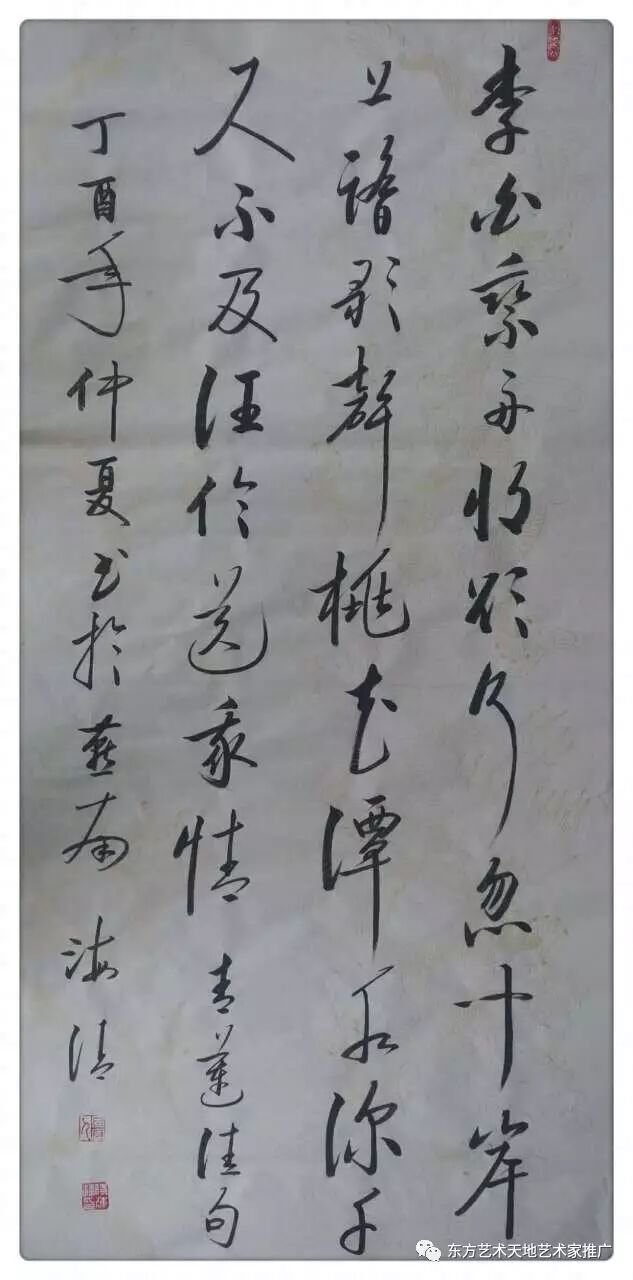 李白乘舟将欲行忽闻岸
上踏歌聲桃花潭水深千
尺不及汪伦送我情 青莲佳句
丁酉年仲夏书於燕南 海清
东方艺术天地艺术家推广